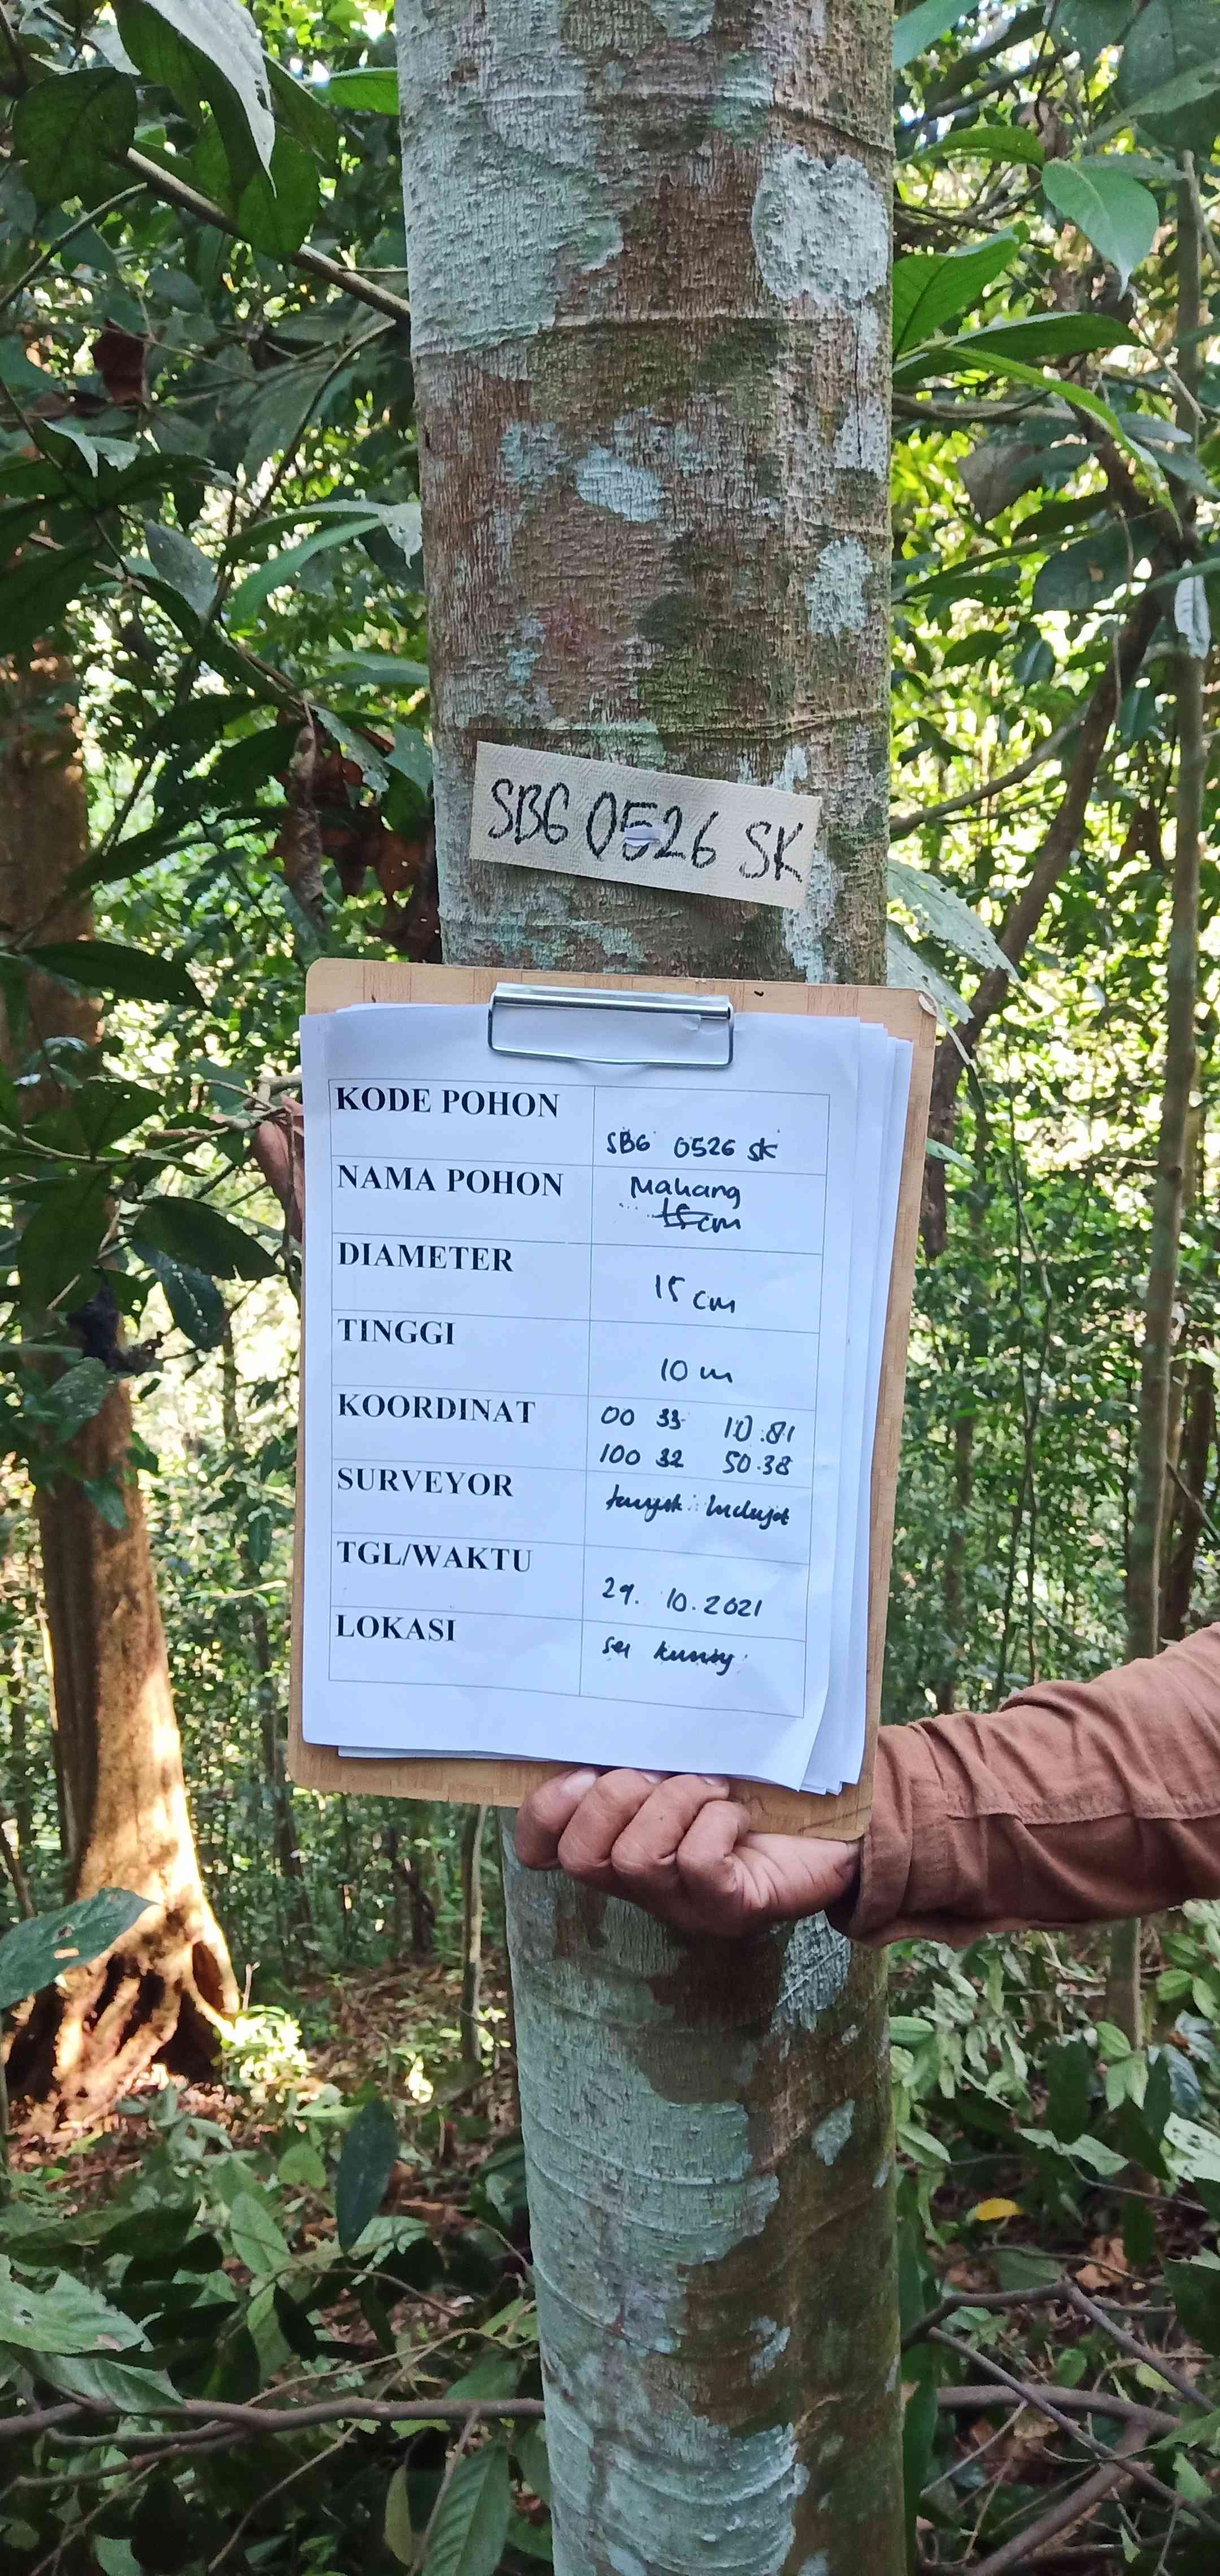 SBG 0526 SK
KODE POHON
SBG 0526 SK
NAMA POHON
Mahang
15 cm
DIAMETER
15 cm
TINGGI
10 m
KOORDINAT
00 33 10.81
100 32 50.38
SURVEYOR
TGL/WAKTU
29. 10. 2021
LOKASI
sei kuning